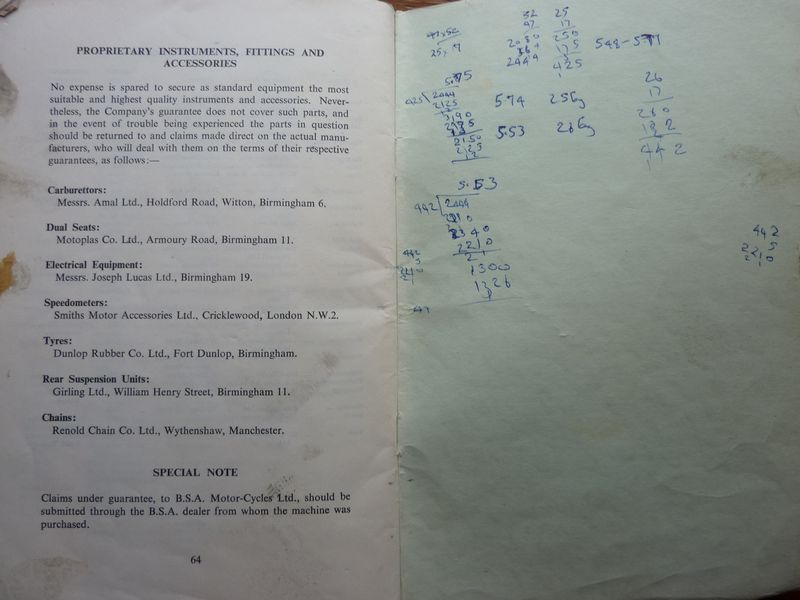 PROPRIETARY INSTRUMENTS, FITTINGS AND
ACCESSORIES
No expense is spared to secure as standard equipment the most
suitable and highest quality instruments and accessories. Never-
theless, the Company's guarantee does not cover such parts, and
in the event of trouble being experienced the parts in question
should be returned to and claims made direct on the actual manu-
facturers, who will deal with them on the terms of their respective
guarantees, as follows:—
Carburettors:
Messrs. Amal Ltd., Holdford Road, Witton, Birmingham 6.
Dual Seats:
Motoplas Co. Ltd., Armoury Road, Birmingham 11.
Electrical Equipment:
Messrs. Joseph Lucas Ltd., Birmingham 19.
Speedometers:
Smiths Motor Accessories Ltd., Cricklewood, London N.W.2.
Tyres:
Dunlop Rubber Co. Ltd., Fort Dunlop, Birmingham.
Rear Suspension Units:
Girling Ltd., William Henry Street, Birmingham 11.
Chains:
Renold Chain Co. Ltd., Wythenshaw, Manchester.
SPECIAL NOTE
Claims under guarantee, to B.S.A. Motor-Cycles Ltd., should be
submitted through the B.S.A. dealer from whom the machine was
purchased.
64
25
17
250
175
425
26
17
260
182
442
5.74
5.53
5.53
442
2444
2210
2340
2210
1300
1326
442
5
2210